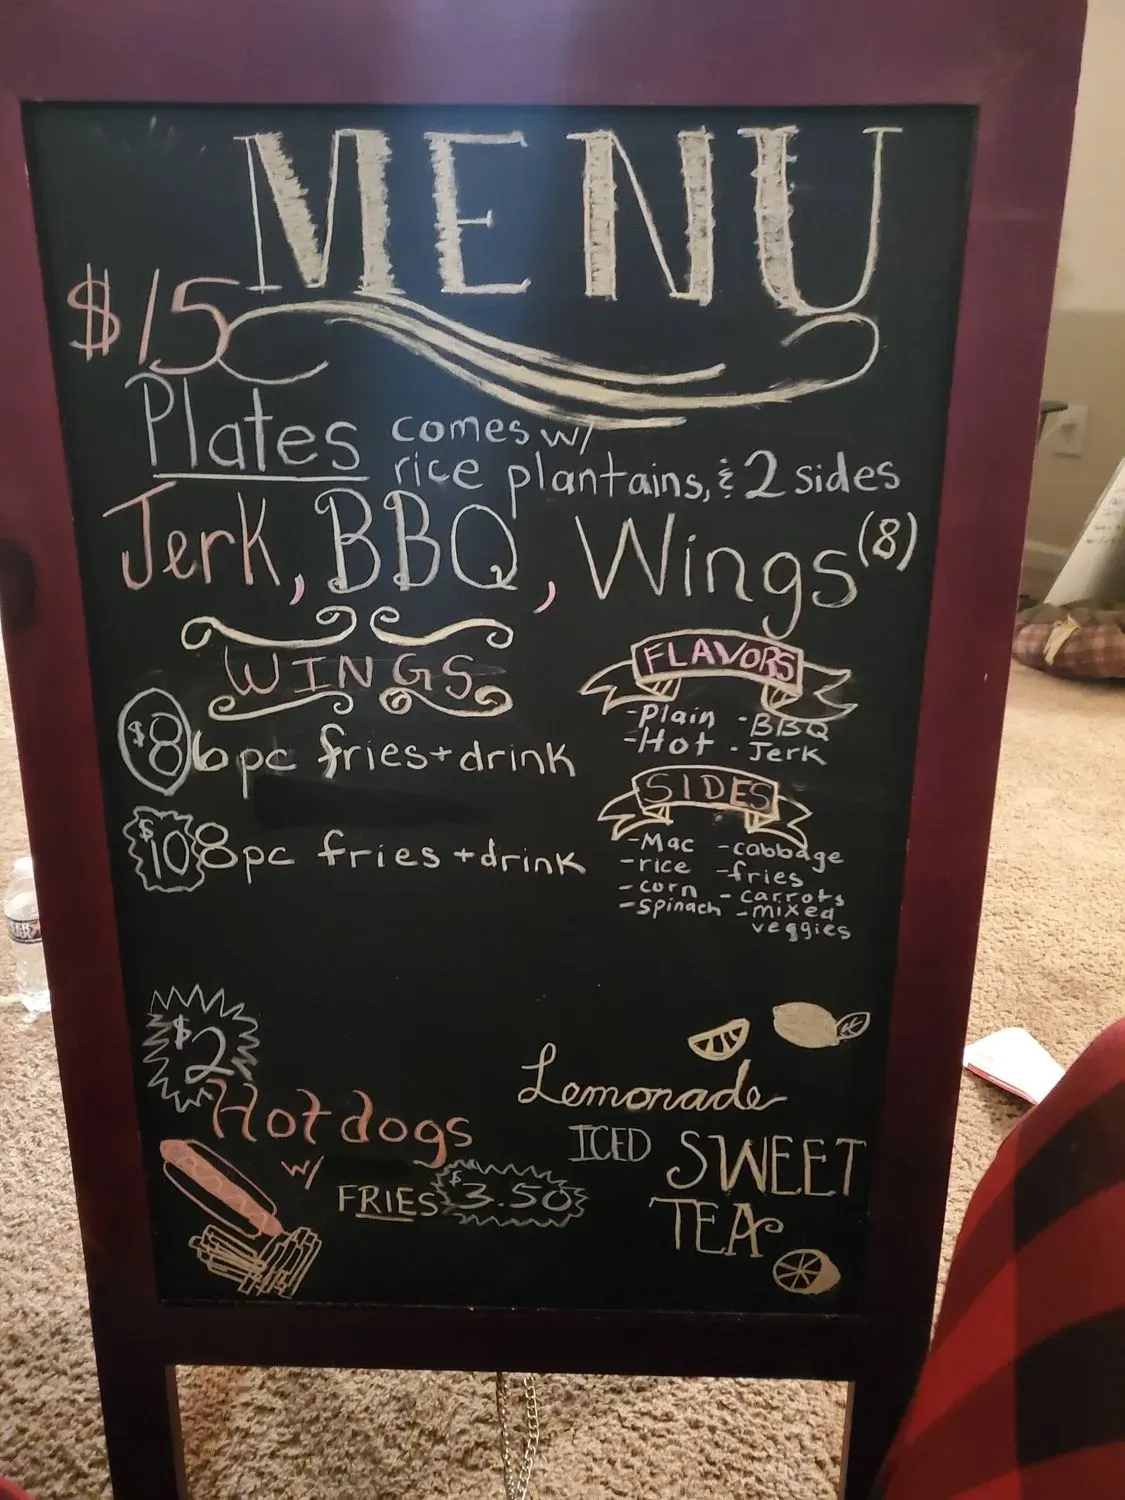 MENU
$15
Plates comes w/
rice plantains, & 2 sides
Jerk, BBQ, Wings (8)
WINGS
$8 6pc fries+drink
$10 8pc fries +drink
FLAVORS
-Plain -BBQ
-Hot -Jerk
SIDES
-Mac -cabbage
-rice -fries
-corn -carrots
-spinach -mixed
veggies
$2
Hotdogs
w/
FRIES $3.50
Lemonade
ICED SWEET
TEA